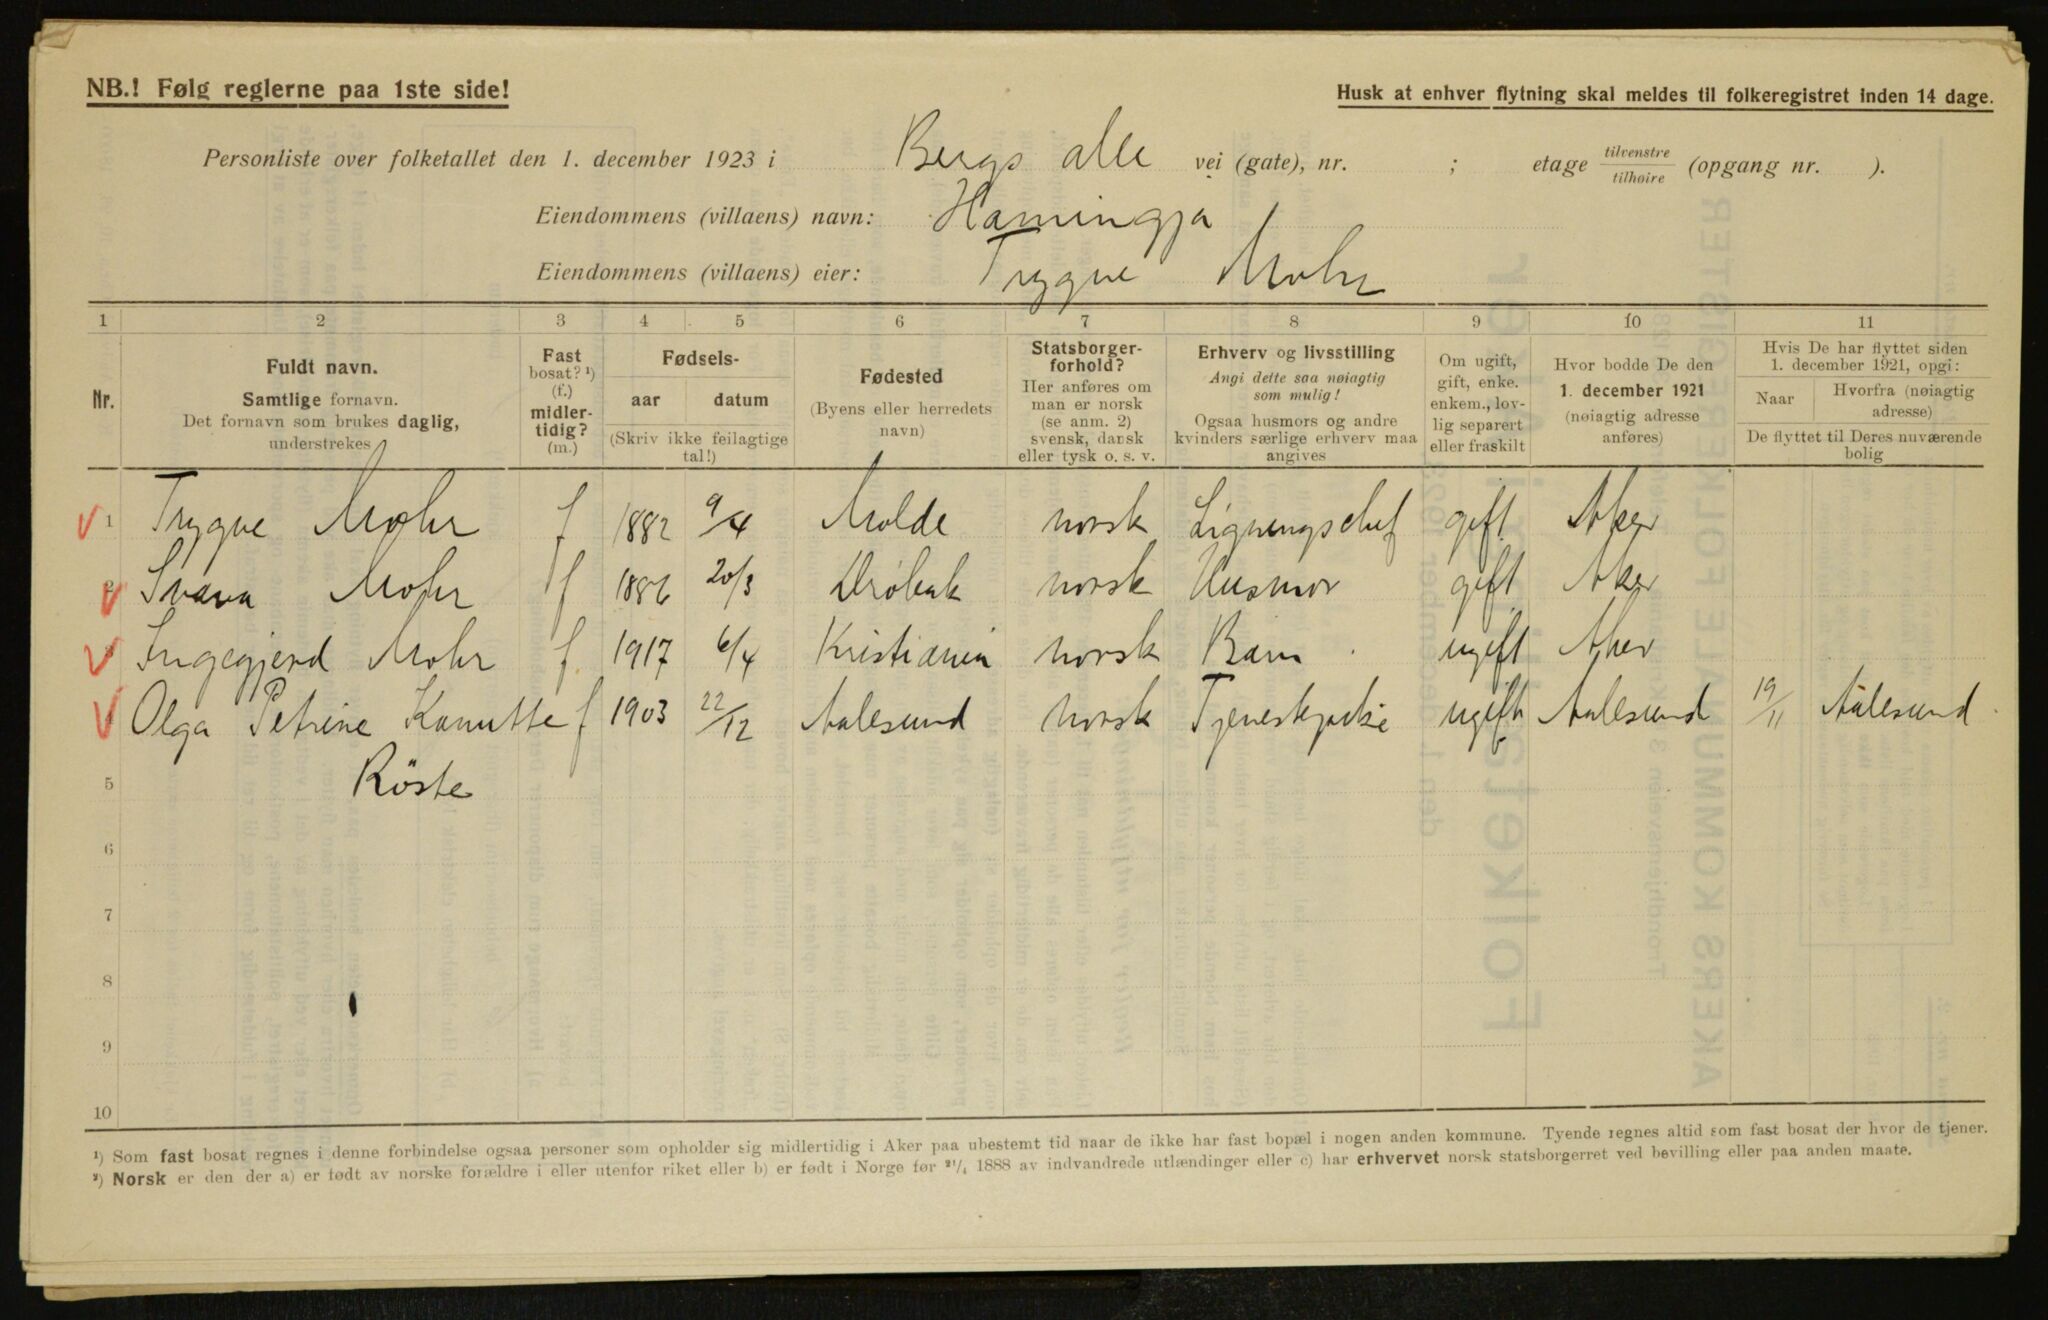 NB.! Følg reglerne paa 1ste side!
Husk at enhver flytning skal meldes til folkeregistret inden 14 dage.
Personliste over folketallet den 1. december 1923 i Bergs alle vei (gate), nr. ; etage tilvenstre / tilhøire (opgang nr. ).
Eiendommens (villaens) navn: Hamingja
Eiendommens (villaens) eier: Trygve Mohr
1 2 3 4 5 6 7 8 9 10 11
Nr.
Fuldt navn.
Samtlige fornavn.
Det fornavn som brukes daglig,
understrekes
Fast
bosat? ¹)
(f.)
midler-
tidig?
(m.)
Fødsels-
aar datum
(Skriv ikke feilagtige
tal!)
Fødested
(Byens eller herredets
navn)
Statsborger-
forhold?
Her anføres om
man er norsk
(se anm. 2)
svensk, dansk
eller tysk o. s. v.
Erhverv og livsstilling
Angi dette saa nøiagtig
som mulig!
Ogsaa husmors og andre
kvinders særlige erhverv maa
angives
Om ugift,
gift, enke.
enkem., lov-
lig separert
eller fraskilt
Hvor bodde De den
1. december 1921
(nøiagtig adresse
anføres)
Hvis De har flyttet siden
1. december 1921, opgi:
Naar Hvorfra (nøiagtig
adresse)
De flyttet til Deres nuværende
bolig
1 Trygve Mohr f 1882 9/4 Molde norsk Ligningschef gift Aker
2 Svava Mohr f 1886 20/3 Drøbak norsk Husmor gift Aker
3 Ingegjerd Mohr f. 1917 6/4 Kristiania norsk Barn ugift Aker
4 Olga Petrine Kanutte f 1903 22/12 Aalesund norsk Tjenestepike ugift Aalesund 19/11 Aalesund
5 Röste
6
7
8
9
10
¹) Som fast bosat regnes i denne forbindelse ogsaa personer som opholder sig midlertidig i Aker paa ubestemt tid naar de ikke har fast bopæl i nogen anden kommune. Tyende regnes altid som fast bosat der hvor de tjener.
²) Norsk er den der a) er født av norske forældre i eller utenfor riket eller b) er født i Norge før ²¹/₄ 1888 av indvandrede utlændinger eller c) har erhvervet norsk statsborgerret ved bevilling eller paa anden maate.